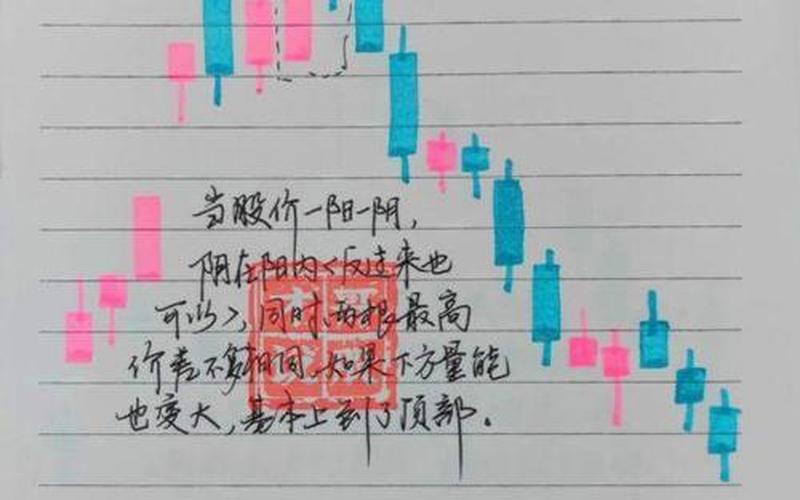 当股价一阳一阴,
阴在阳内<反过来也
可以>,同时两根最高
价差不多相同。如果下方量能
也变大,基本上到了顶部。